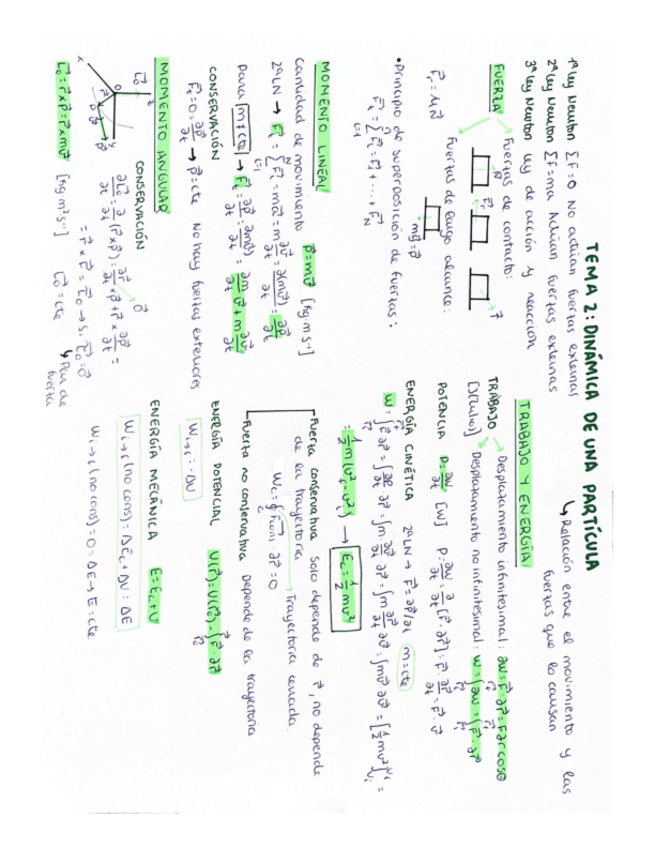 TEMA 2: DINÁMICA DE UNA PARTÍCULA
↳ Relación entre el movimiento y las
fuerzas que lo causan
1ª Ley Newton ΣF=0 No actúan fuerzas externas
2ª Ley Newton ΣF=ma Actúan fuerzas externas
3ª Ley Newton Ley de acción y reacción
FUERZA
Fuerzas de contacto:
N
Fr
T
Fuerzas de largo alcance:
mg=P
Fr=μN
•Principio de superposición de fuerzas:
Ft=ΣFi=F1+...+FN
MOMENTO LINEAL
Cantidad de movimiento p=mv [kg m s⁻¹]
2ªLN → Ft=ΣFi=ma=m ∂v/∂t=∂(mv)/∂t=∂p/∂t
Para m≠cte → Ft=∂p/∂t=∂(mv)/∂t=∂m/∂t v+m ∂v/∂t
CONSERVACIÓN
Ft=0=∂p/∂t → p=cte No hay fuerzas exteriores
MOMENTO ANGULAR
CONSERVACIÓN
∂Lo/∂t=∂/∂t(r×p)=∂r/∂t×p+r×∂p/∂t=
=r×F=τo → si τo=0
Lo=cte
Lo=r×p=r×mv [kg·m²s⁻¹]
TRABAJO Y ENERGÍA
TRABAJO → Desplazamiento infinitesimal: ∂W=F·∂r=F∂r cosθ
[J(Julio)] Desplazamiento no infinitesimal: W=∫∂W=∫F·∂r
POTENCIA P=∂W/∂t [W] P=∂W/∂t=∂/∂t[F·∂r]=F·∂r/∂t=F·v
ENERGÍA CINÉTICA 2ªLN → F=∂p/∂t m=cte
W=∫F∂r=∫∂p/∂t ∂r=∫m ∂v/∂t ∂r=∫m ∂r/∂t ∂v=∫mv ∂v=[½mv²]=
=½m(vf²-vi²) → Ec=½mv²
Fuerza conservativa Solo depende de r, no depende
de la trayectoria
Wc=∮Fcons·∂r=0
Trayectoria cerrada.
Fuerza no conservativa Depende de la trayectoria
ENERGÍA POTENCIAL U(r)=U(r0)-∫F·∂r
Wi→f=-ΔU
ENERGÍA MECÁNICA E=Ec+U
Wi→f(no cons)=ΔEc+ΔU=ΔE
Wi→f(no cons)=0=ΔE→E=cte